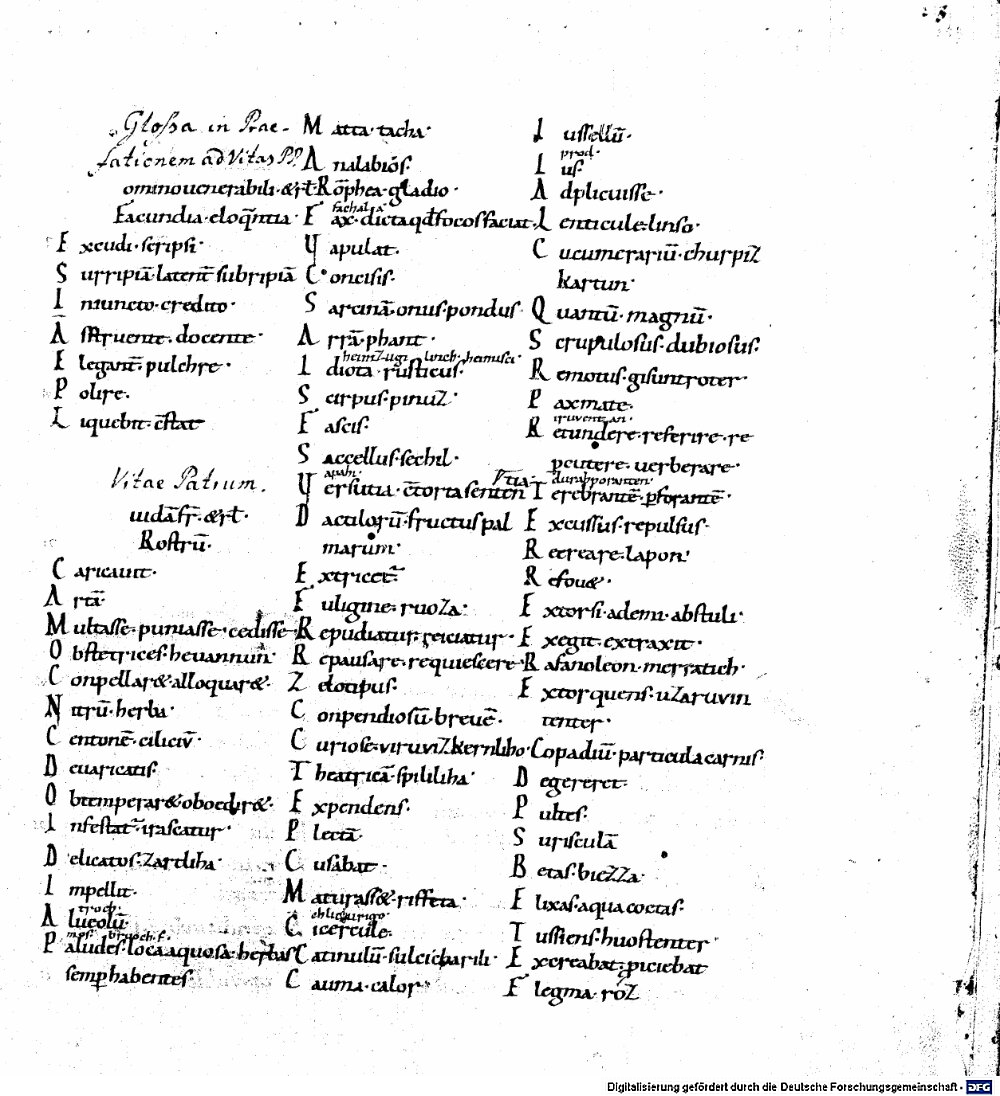 : 5
Glossa in Prae-
fationem ad Vitas PP.
omino uenerabili · & rł
Facundia · eloqñtia ·
Excudi · scripsi ·
Surripiā · latent̄ subripiā
Iniuncto · credito ·
Astruente · docente ·
Elegant̄ · pulchre ·
Polire ·
Liquebit · c̄stat
Vitae Patrum.
uidā fr̄ · & rł ·
Rostrū ·
Caricauit ·
Artā ·
Multasse · puniasse · cedisse
Obstetrices · heuannun ·
Conpellar& · alloquar& ·
Nitrū · herba ·
Centonē · ciliciū ·
Deuaricatis ·
Obtemperar& · oboedir& ·
Infestat̄ · irascatur ·
Delicatus · zartliha ·
Impellit ·
troch ·
Alueolū ·
Paludes · loca aquosa · herbas
semp habentes ·
Matta · tacha ·
Analabios ·
Rōphea · gladio ·
fachalā
Fax · dicta qđ focos faciat ·
Vapulat ·
Concisis ·
Sarcinā · onus · pondus ·
Arrā · phant ·
Idiota · rusticus ·
Scirpus · pinuz ·
Fascis ·
Saccellus · sechil ·
Versutia · c̄torta senten
tia ·
Dactilorū · fructus pal
marum ·
Extricet̄
Fuligine · ruoza ·
Repudiatur · reiciatur ·
Repausare · requiescere ·
Zelotipus ·
Conpendiosū · breuē ·
Curiose · uiruuizkernliho ·
Theatricā · spililiha ·
Expendens ·
Plectā ·
Cusabat ·
Maturass& · riffeta ·
Cicercule ·
Catinulū · sulcicharili ·
Cauma · calor ·
Iussellū ·
prod ·
Ius ·
Adplicuisse ·
Lenticule · linso ·
Cucumerariū · churpiz
kartun ·
Quantū · magnū ·
Scrupulosus · dubiosus ·
Remotus · gisuntroter ·
Paxmate ·
Retundere · referire · re
pcutere · uerberare ·
durahporanten ·
Terebrantē · pforantē ·
Excussus · repulsus ·
Recreare · lapon ·
Refou& ·
Extorsi · ademi · abstuli ·
Exegit · extraxit ·
Rafanoleon · merratich ·
Extorquens · uzaruuin
tenter ·
Copadiū · particula carnis ·
Degereret ·
Pultes ·
Surisculā
Betas · biezza ·
Elixas · aqua coctas ·
Tussiens · huostenter ·
Excreabat · piciebat
Flegma · roz
74
Digitalisierung gefördert durch die Deutsche Forschungsgemeinschaft - DFG